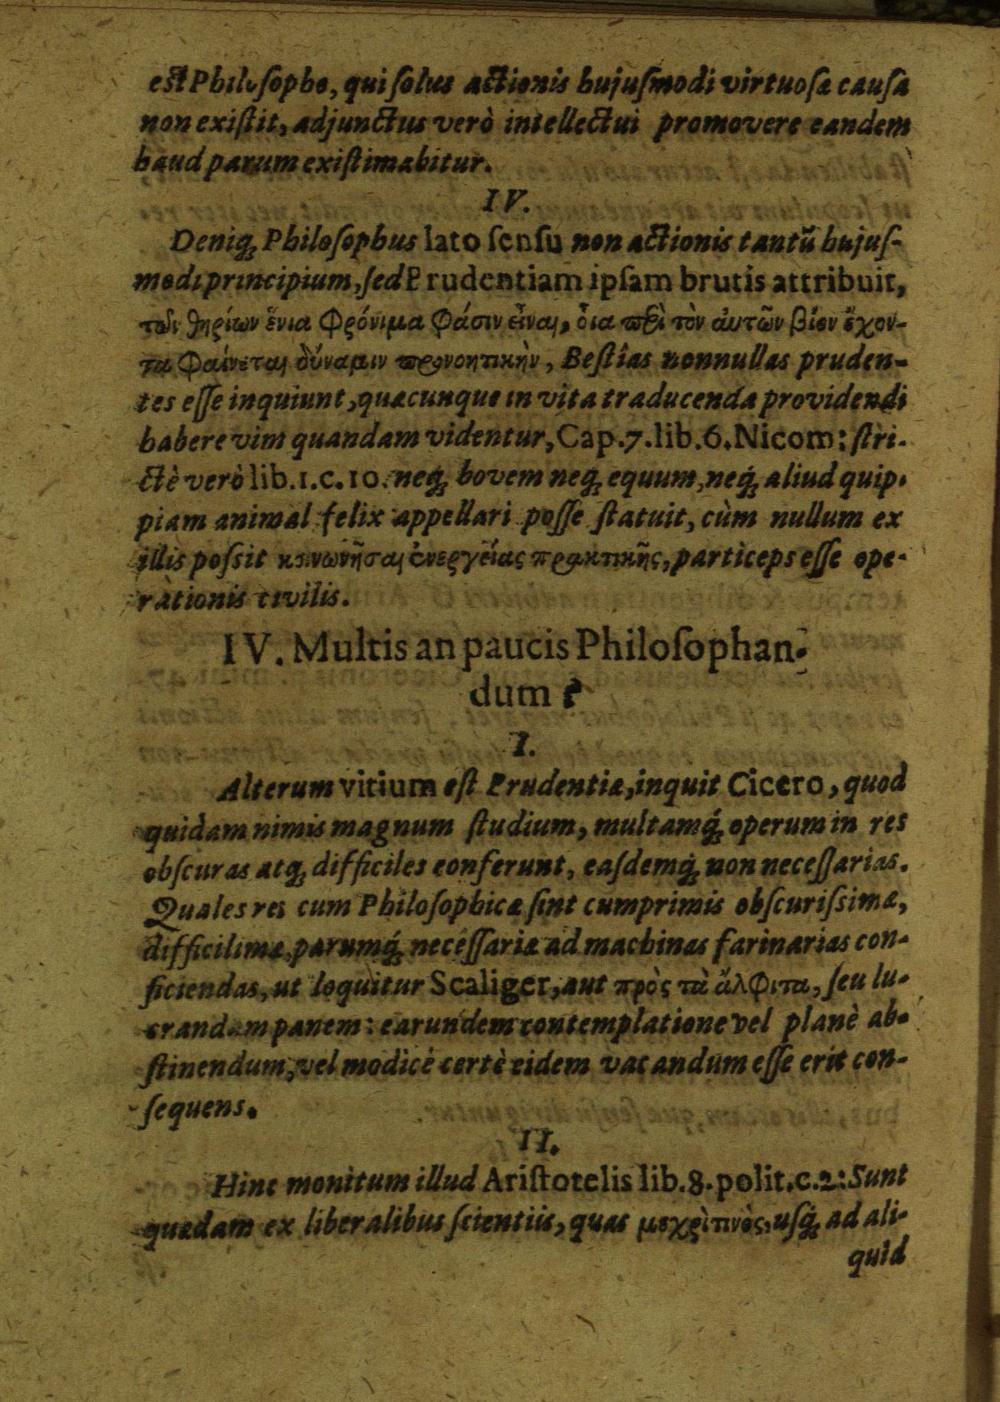 est Philosopho, qui solus actionis hujusmodi virtuosæ causa
non existit, adjunctus verò intellectui promovere eandem
haud parum existimabitur.
IV.
Deniq; Philosophus lato sensu non actionis tantũ hujus-
modi principium, sed Prudentiam ipsam brutis attribuit,
τῶν θηρίων ἔνια φρόνιμα φάσιν εἶναι, ὅσα περὶ τὸν ἁυτῶν βίον ἔχον-
τα φαίνεται δύναμιν προνοητικὴν, Bestias nonnullas pruden-
tes esse inquiunt, quæcunque in vita traducenda providendi
habere vim quandam videntur, Cap. 7. lib. 6. Nicom: stri-
ctè verò lib. 1. c. 10. neq; bovem neq; equum, neq; aliud quip-
piam animal felix appellari posse statuit, cùm nullum ex
illis possit κοινωνῆσαι ἐνεργείας πρακτικῆς, particeps esse ope-
rationis civilis.
IV. Multis an paucis Philosophan-
dum?
I.
Alterum vitium est Prudentiæ, inquit Cicero, quod
quidam nimis magnum studium, multamq; operum in res
obscuras atq; difficiles conferunt, easdemq; non necessarias.
Quales res cum Philosophicæ sint cumprimis obscurissimæ,
difficilimæ, parumq; necessariæ ad machinas farinarias con-
ficiendas, ut loquitur Scaliger, aut πρὸς τὰ ἄλφιτα, seu lu-
crandum panem: earundem contemplatione vel planè ab-
stinendum, vel modicè certè eidem vacandum esse erit con-
sequens.
II.
Hinc monitum illud Aristotelis lib. 8. polit. c. 2: Sunt
quædam ex liberalibus scientiis, quas μεχρὶ τινὸς, usq; ad ali-
quid